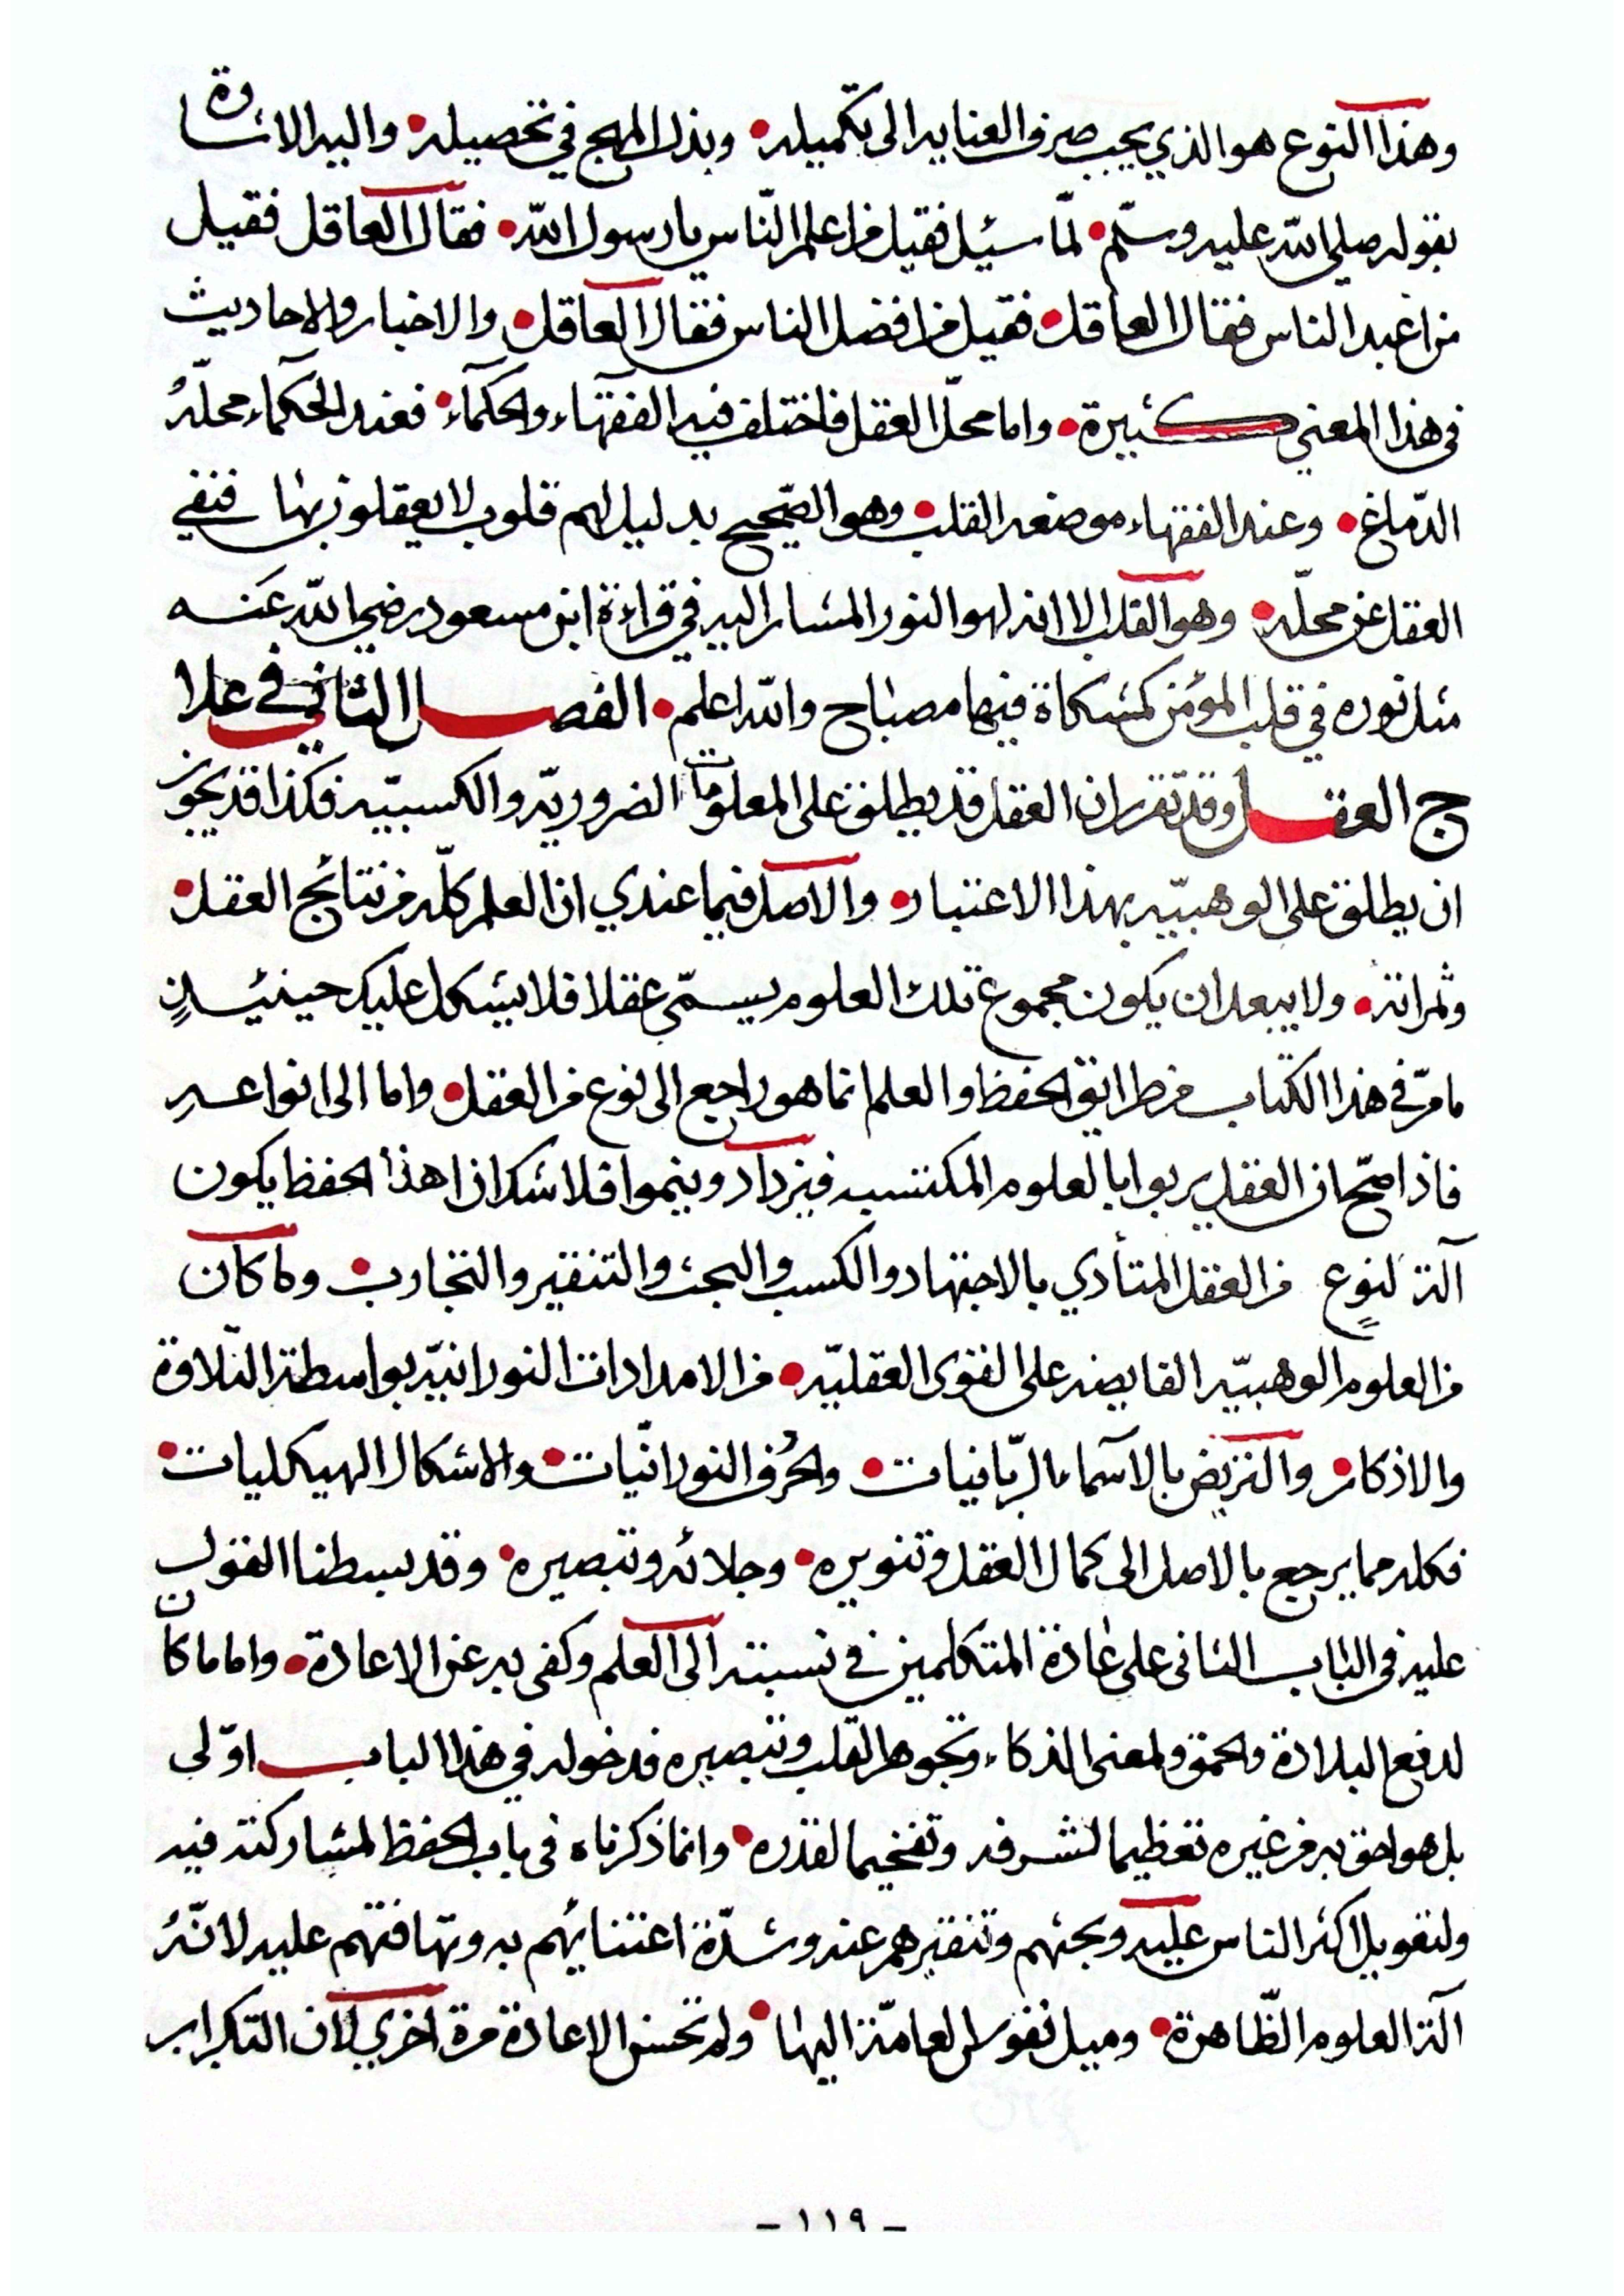 وهذا النوع هو الذي يجب صرف العنايه الى تكميله • وبذل المهج في تحصيله • واليه الاشارة
بقوله صلى الله عليه وسلّم • لمّا سئيل فقيل من اعلم النّاس يا رسول الله • فقال العاقل فقيل
من اعبد الناس فقال العاقل • فقيل من افضل الناس فقال العاقل • والاخبار والاحاديث
في هذا المعني كثيرة • واما محلّ العقل فاختلف فيه الفقهآء والحكمآء • فعند الحكماء محلّهُ
الدّماغ • وعند الفقهاء موضعه القلب • وهو الصّحيح بدليل لهم قلوب لا يعقلون بها فنفي
العقل عن محلّه • وهو القلب الا انه لهو النور المشار اليه في قراءة ابن مسعود رضي الله عنه
مثل نوره في قلب المؤمن كمشكاة فيها مصباح والله اعلم • الفصل الثاني في علا
ج العقل وقد تقرر ان العقل قد يطلق على المعلومات الضروريّه والكسبيّه فكذا قد يجوز
ان يطلق على الوهبيّه بهذا الاعتبار • والاصل فيما عندي ان العلم كلّه من نتائج العقل •
وثمراته • ولا يبعد ان يكون مجموع تلك العلوم يسمّى عقلا فلا يشكل عليك حينئيذٍ
ما مرّ في هذا الكتاب من طرايق الحفظ والعلم انما هو راجع الى نوع من العقل • واما الى انواعه
فاذا صحّ ان العقل يربوا بالعلوم المكتسبه فيزداد وينموا فلا شك ان هذا الحفظ يكون
آلة لنوعٍ من العقل المتأدي بالاجتهاد والكسب والبحث والتنقير والتجارب • ولما كان
من العلوم الوهبيّه الفايضه على القوى العقليّه • من الامدادات النورانيّه بواسطة التّلاوة
والاذكار • والتريض بالآسماء الرّبانيات • والحُرف النورانّيات • والاشكال الهيكليات •
فكله مما يرجع بالاصل الى كمال العقل وتنويره • وجلائه وتبصيره • وقد بسطنا القول
عليه في الباب الثانى على عادة المتكلمين في نسبته الى العلم وكفى به عن الاعادة • واما ما كان
لدفع البلادة والحمق ولمعنى الذكاء وتجوهر القلب وتبصيره فدخوله في هذا الباب اوّلى
بل هو احق به من غيره تعظيما لشرفه وتفخيما لقدره • وانما ذكرناه في باب الحفظ لمشاركته فيه
ولتعويل اكثر الناس عليه وبحثهم وتنقيرهم عنه وشدّة اعتنايئهم به وتهافتهم عليه لانّهُ
آلة العلوم الظّاهرة • وميل نفوس العامّة اليها • ولم تحسن الاعادة مرة اخري لان التكرار
- ١١٩ -